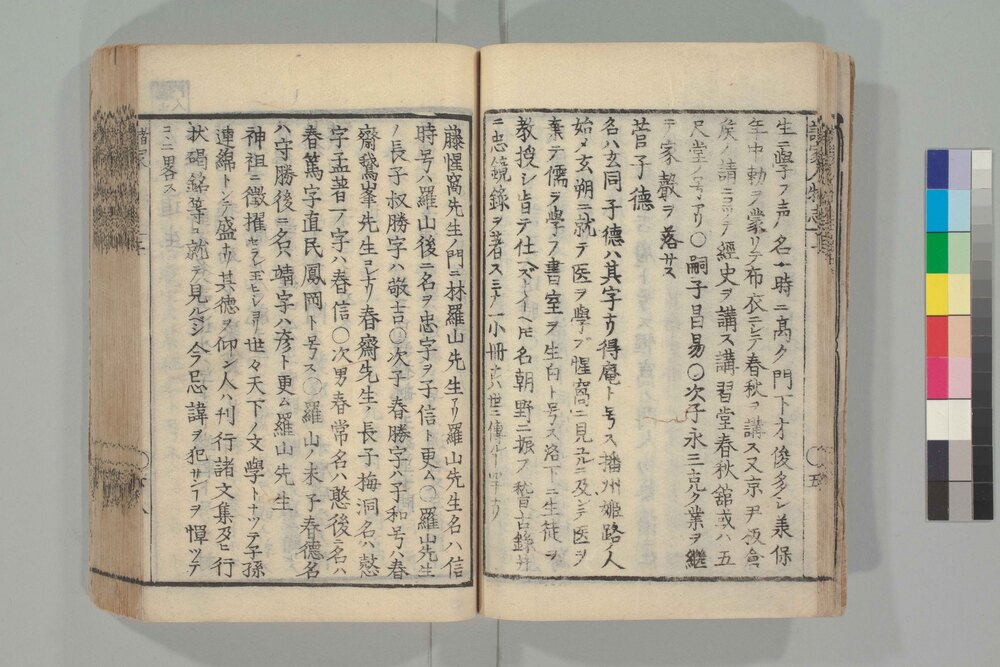 生ニ學フ声名一時ニ高ク門下才俊多シ兼保
年中勅ヲ蒙リテ布衣ニシテ春秋ヲ講ス又京尹板倉
矦ノ請ニヨツテ經史ヲ講ス講習堂春秋館或ハ五
尺堂ノ号アリ〇嗣子昌易〇次子永三克ク業ヲ継
テ家聲ヲ落サス
菅子德
名ハ玄同子德ハ其字ナリ得庵ト号ス播州姫路人
始メ玄朔ニ就テ医ヲ學フ惺窩ニ見ユルニ及ンテ医ヲ
棄テ儒ヲ學フ書室ヲ生白ト号ス洛下ニ生徒ヲ
教授シ皆テ仕ヘズトイヘトモ名朝野ニ振フ稽古錄并
ニ忠鏡錄ヲ著ス
藤惺窩先生ノ門ニ林羅山先生アリ羅山先生名ハ信
時号ハ羅山後ニ名ヲ忠字ヲ子信ト更ム〇羅山先生
ノ長子叔勝字ハ敬吉〇次子春勝字ハ子和号ハ春
齋鵞峯先生コレナリ春齋先生ノ長子梅洞名ハ愨
字孟著一ノ字ハ春信〇次男春常名ハ憨後ニ名ハ
春篤字直民鳳岡ト号ス〇羅山ノ末子春德名
ハ守勝後ニ名靖字ハ彦ト更ム羅山先生
神祖ニ徴擢セラレ玉ヒシヨリ世々天下ノ文學トナツテ子孫
連綿トシテ盛ナリ其德ヲ仰ン人ハ刊行諸文集及ヒ行
狀碣銘等ニ就テ見ルベシ今忌諱ヲ犯サンコトヲ憚ツテ
コヽニ畧ス